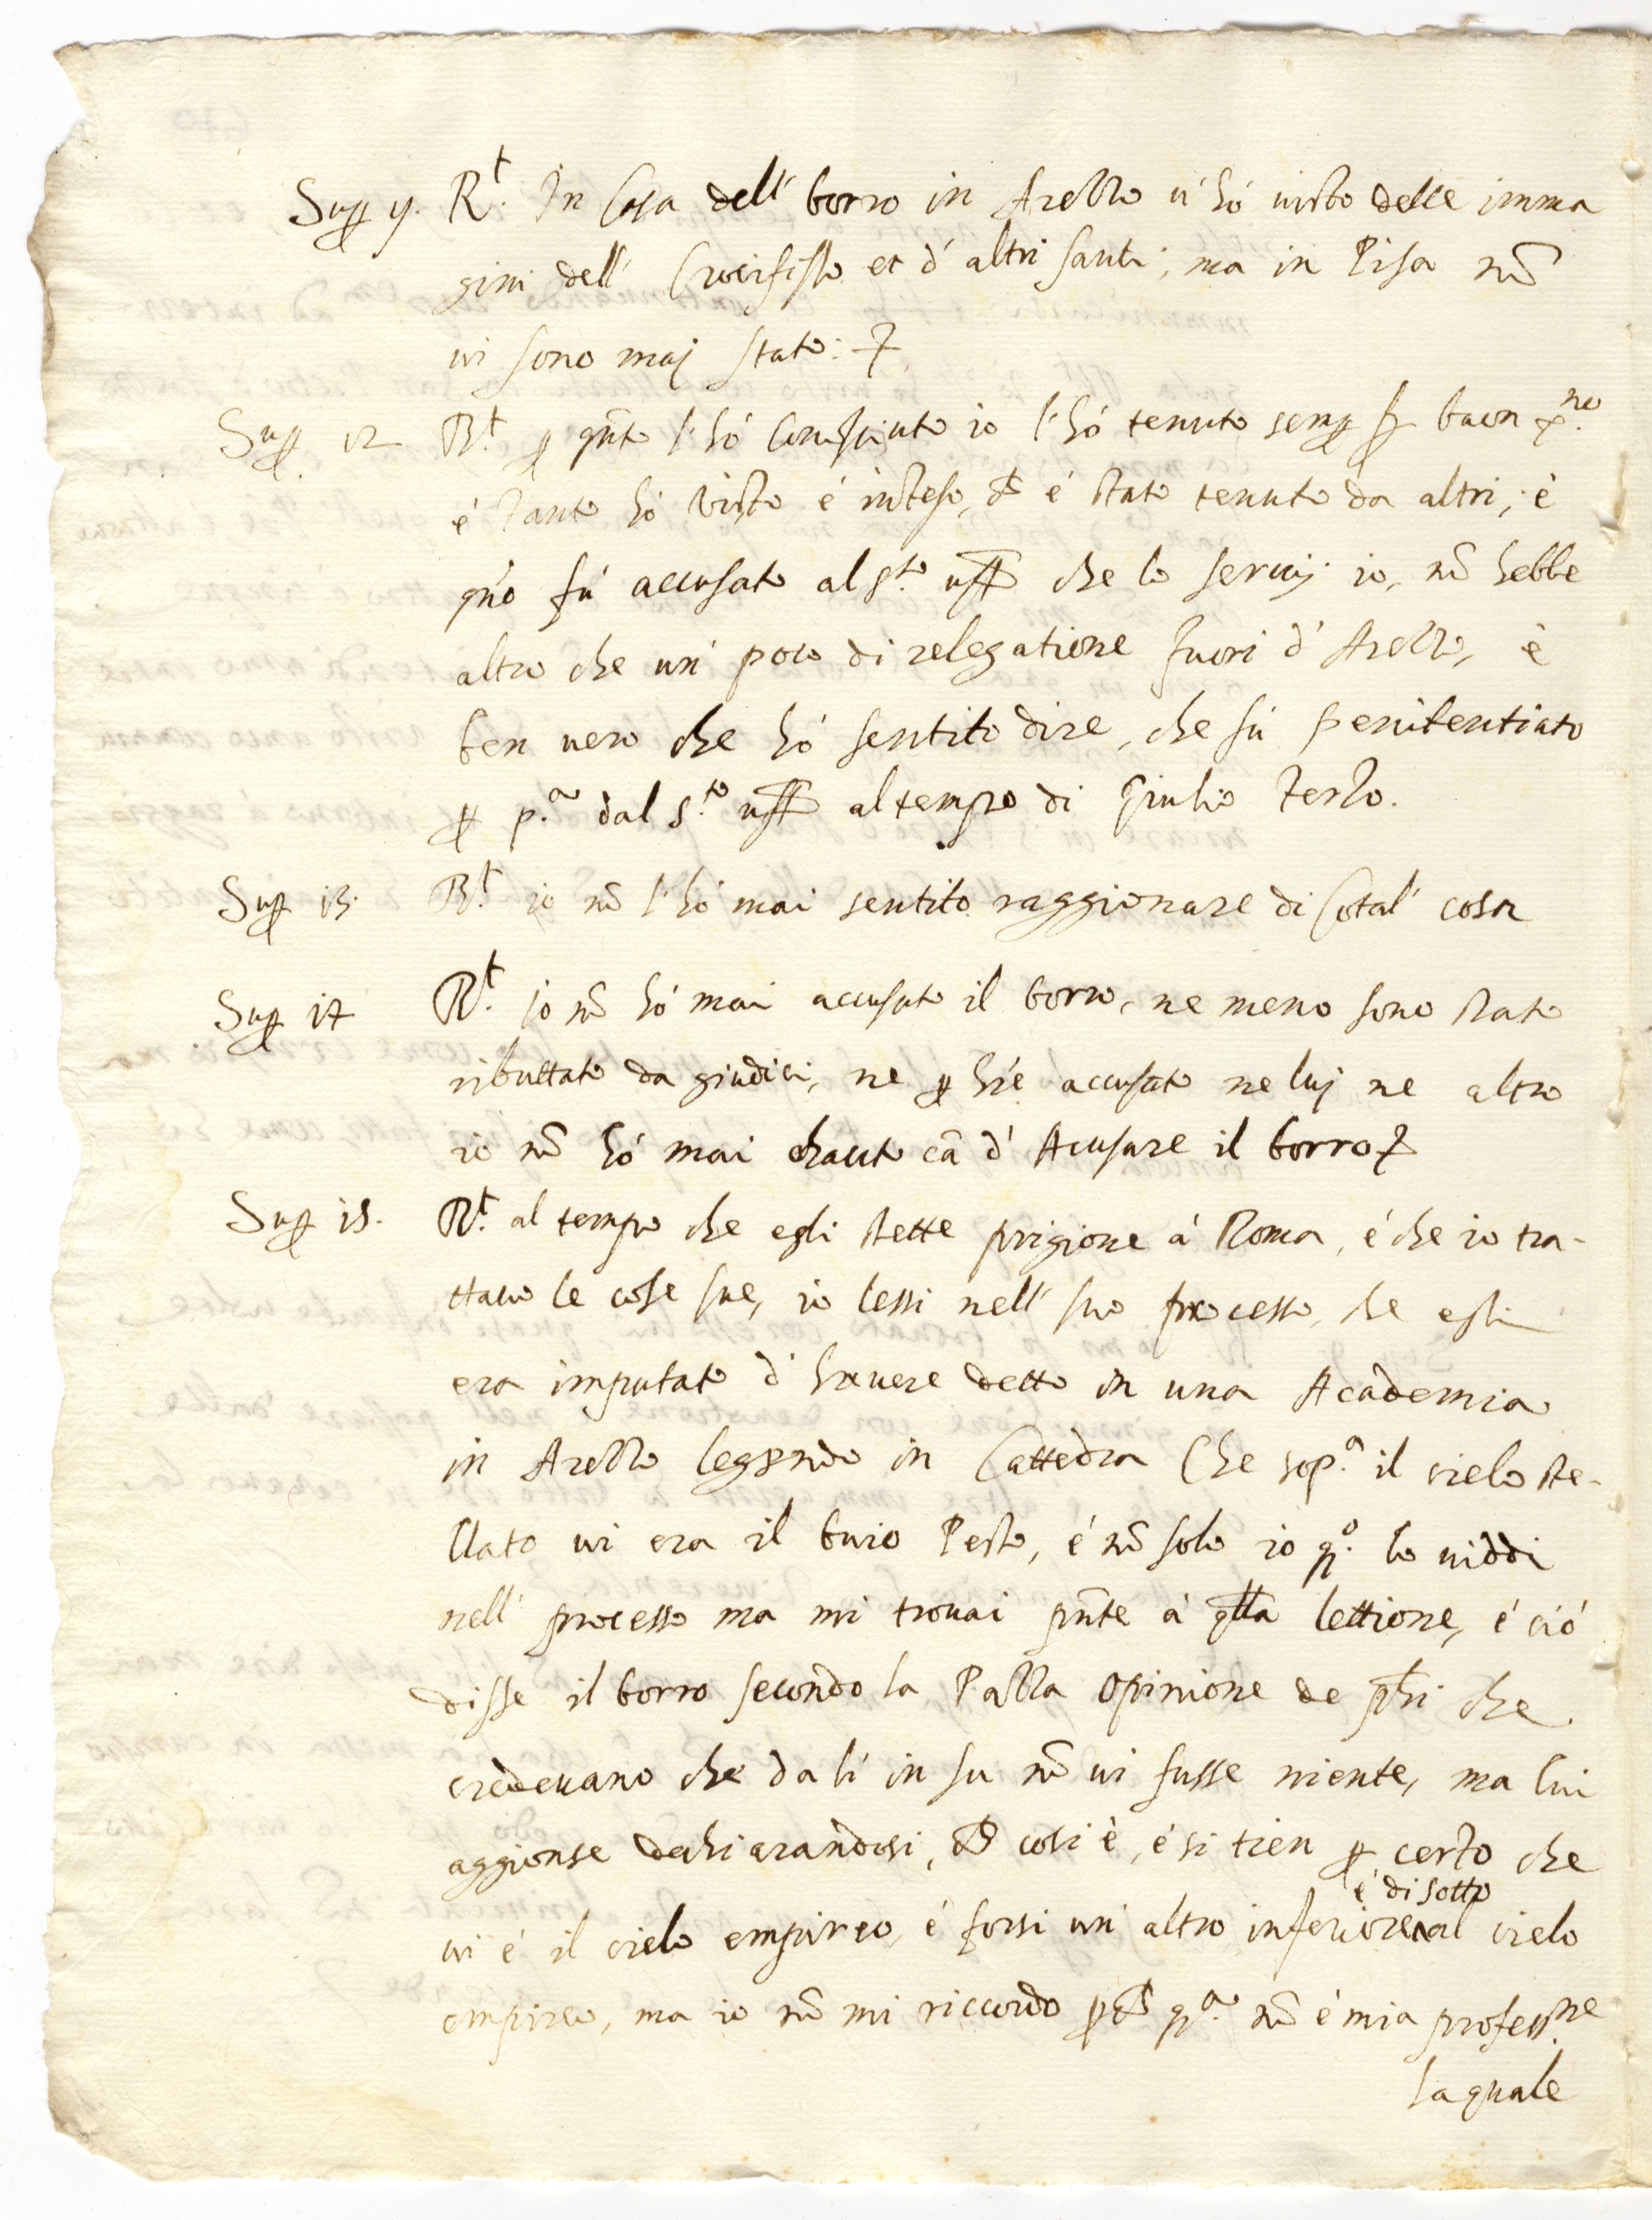 Supr 11. R.t In Casa dell' borro in Arezzo ci hó visto delle imma
gini dell' Crocifisso et d' altri santi; ma in Pisa nō
vi sono maj stato: 
Supr 12 R.t p qnto l' hó Conosciuto io l' hó tenuto semp p buon x.no
é Tanto hó visto é inteso, ch é stato tenuto da altri; è
qn'o fú accusato al s.to uff che lo servij io, nō hebbe
altro che un' poco di relegatione fuori d' Arezzo, è
ben vero che hó sentito dire, che fú penitentiato
p p.a dal S.to uff al tempo di Giulio Terzo.
Supr 13. R.t io nō l' hó mai sentito raggionare di Cotal' cosa
Supr 14 R.t io nō hó mai accusato il borro, ne meno sono stato
ributtato da giudici, ne p h're accusato ne luj ne altro
io nō hó mai hauto cā d' Acusare il borro
Supr 15. R.t al tempo che egli stette prigione á Roma, é che io tra-
ttavo le cose sue, io lessi nell' suo processo, che egli
era imputato d' havere detto in una Academia
in Arezzo leggendo in Cattedra Che sop.a il cielo ste-
llato vi era il buio Pesto, é nō solo io q.o lo viddi
nell' processo ma mi trovai pn̄te á qlla lettione, é ció
disse il borro secondo la Pazza opinione de phi che
credevano che da lí in su nō vi fusse niente, ma lui
aggionse dechiarandosi, ch cosi è, é si tien p certo che
é di sotto
vi é il cielo empireo, é forsi un' altro inferiore al cielo
empireo, ma io nō mi riccordo pch q.a nō é mia profess.ne
laquale